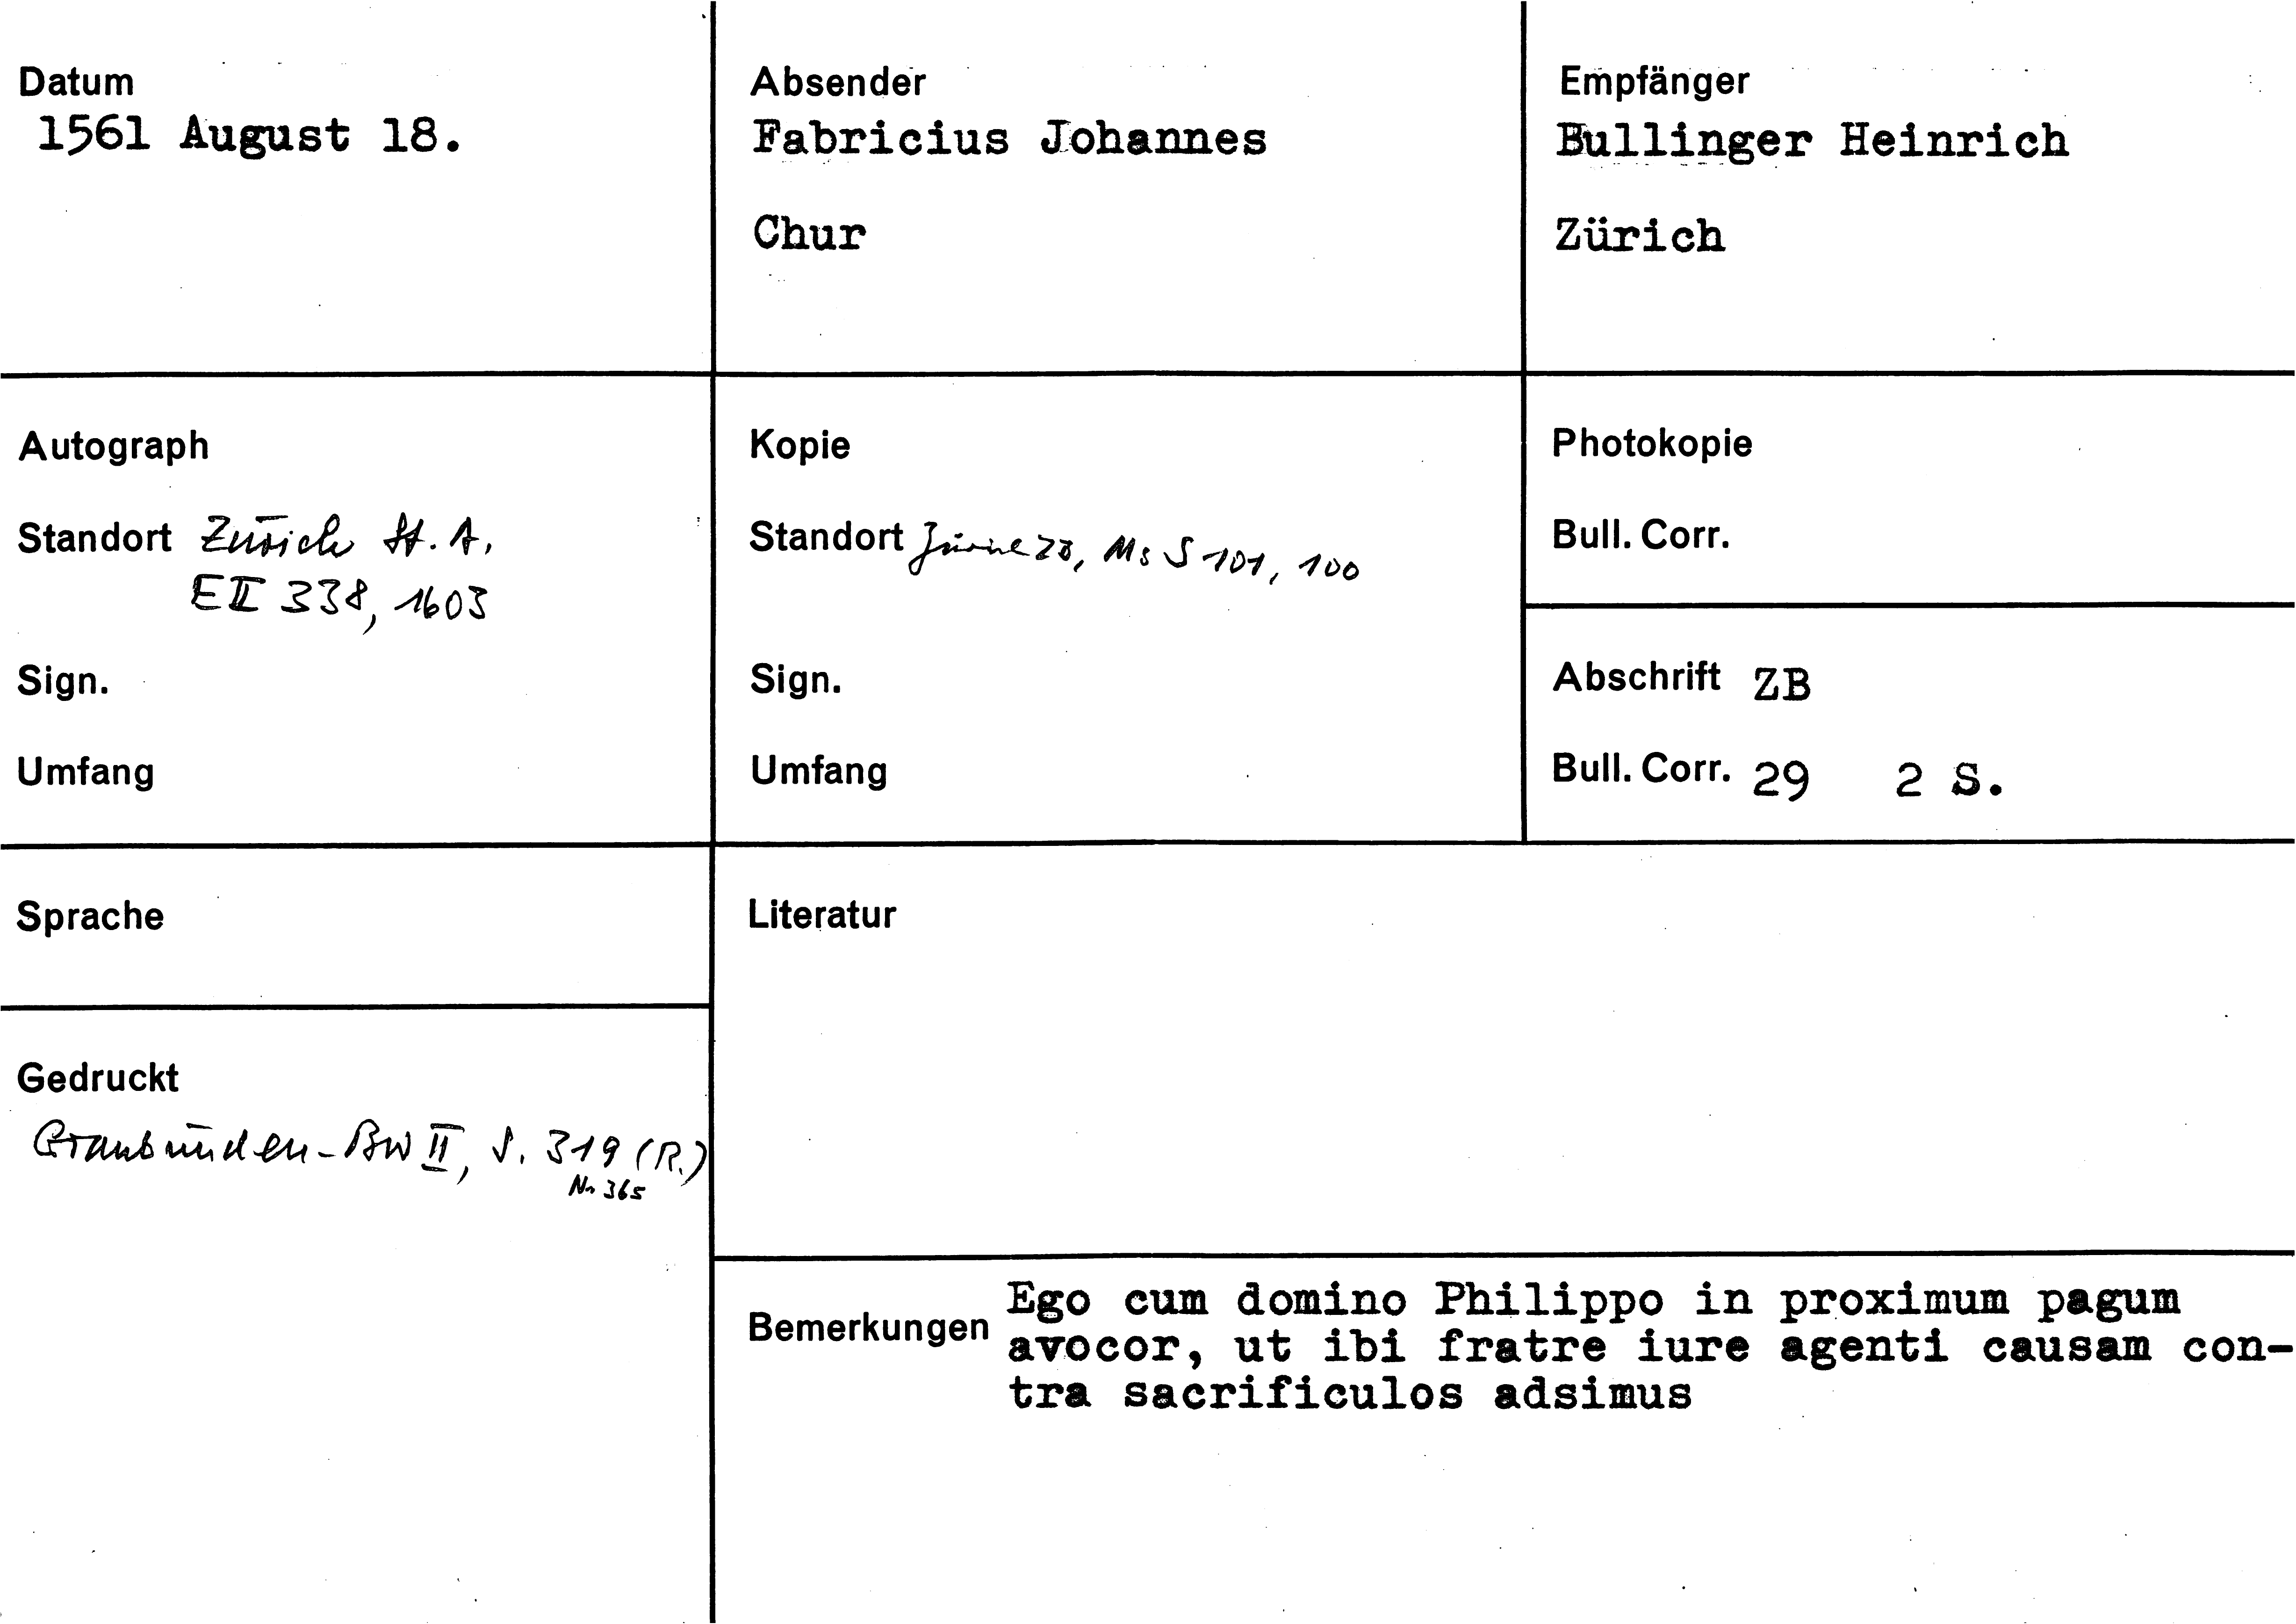 Datum
1561 August 18.
Absender
Fabricius Johannes
Chur
Empfänger
Bullinger Heinrich
Zürich
Autograph
Standort Zürich St. A.
E II 338, 1603
Sign.
Umfang
Kopie
Standort Zürich ZB, Ms S 101, 100
Sign.
Umfang
Photokopie
Bull. Corr.
Abschrift ZB
Bull. Corr. 29 2 S.
Sprache
Literatur
Gedruckt
Graubünden-BW II, S. 319 (R.)
Nr 365
Bemerkungen
Ego cum domino Philippo in proximum pagum
avocor, ut ibi fratre iure agenti causam con-
tra sacrificulos adsimus